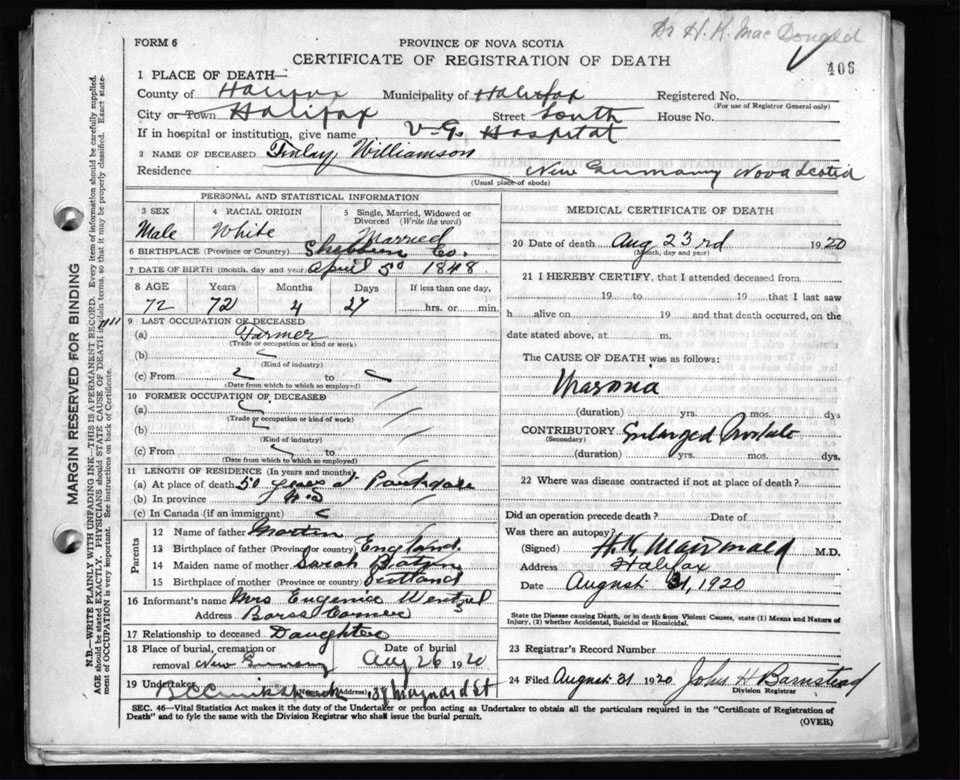 Dr H. K. MacDonald
FORM 6
PROVINCE OF NOVA SCOTIA
405
CERTIFICATE OF REGISTRATION OF DEATH
1 PLACE OF DEATH—
County of Halifax Municipality of Halifax Registered No.
(For use of Registrar General only)
City or Town Halifax Street South House No.
If in hospital or institution, give name V-G. Hospital
2 NAME OF DECEASED Finlay Williamson
Residence New Germany Nova Scotia
(Usual place of abode)
PERSONAL AND STATISTICAL INFORMATION
3 SEX 4 RACIAL ORIGIN 5 Single, Married, Widowed or Divorced (Write the word)
Male White Married
6 BIRTHPLACE (Province or Country) Co.
7 DATE OF BIRTH (month, day and year) April 1848
8 AGE Years Months Days If less than one day,
72 72 4 27 hrs. or min.
9 LAST OCCUPATION OF DECEASED
(a) Farmer
(Trade or occupation or kind or work)
(b)
(Kind of industry)
(c) From to
(Date from which to which so employed)
10 FORMER OCCUPATION OF DECEASED
(a)
(Trade or occupation or kind of work)
(b)
(Kind of industry)
(c) From to
(Date from which to which so employed)
11 LENGTH OF RESIDENCE (In years and months)
(a) At place of death 50 years at Parkdale
(b) In province N.S
(c) In Canada (if an immigrant)
Parents
12 Name of father Martin
13 Birthplace of father (Province or country) England.
14 Maiden name of mother Sarah
15 Birthplace of mother (Province or country) Scotland
16 Informant's name Mrs Eugenia Wentzel
Address Barss Corner
17 Relationship to deceased Daughter
18 Place of burial, cremation or removal New Germany Date of burial Aug 26 1920
19 Undertaker (Name) (Address) Maynard St
MEDICAL CERTIFICATE OF DEATH
20 Date of death Aug 23rd 1920
(Month, day and year)
21 I HEREBY CERTIFY, that I attended deceased from
19 to 19 that I last saw
h alive on 19 and that death occurred, on the
date stated above, at m.
The CAUSE OF DEATH was as follows:
(duration) yrs. mos. dys
CONTRIBUTORY Enlarged Prostate
(Secondary)
(duration) yrs. mos. dys.
22 Where was disease contracted if not at place of death?
Did an operation precede death? Date of
Was there an autopsy?
(Signed) H.K. MacDonald M.D.
Address Halifax
Date August 31, 1920
State the Disease causing Death, or in death from Violent Causes, state (1) Means and Nature of
Injury, (2) whether Accidental, Suicidal or Homicidal.
23 Registrar's Record Number
24 Filed August 31 1920 John H Barnstead
Division Registrar
SEC. 46—Vital Statistics Act makes it the duty of the Undertaker or person acting as Undertaker to obtain all the particulars required in the "Certificate of Registration of
Death" and to fyle the same with the Division Registrar who shall issue the burial permit.
(OVER)
MARGIN RESERVED FOR BINDING
N.B.—WRITE PLAINLY WITH UNFADING INK—THIS IS A PERMANENT RECORD. Every item of information should be carefully supplied.
AGE should be stated EXACTLY. PHYSICIANS should STATE CAUSE OF DEATH in plain terms, so that it may be properly classified. Exact state-
ment of OCCUPATION is very important. See instructions on back of Certificate.